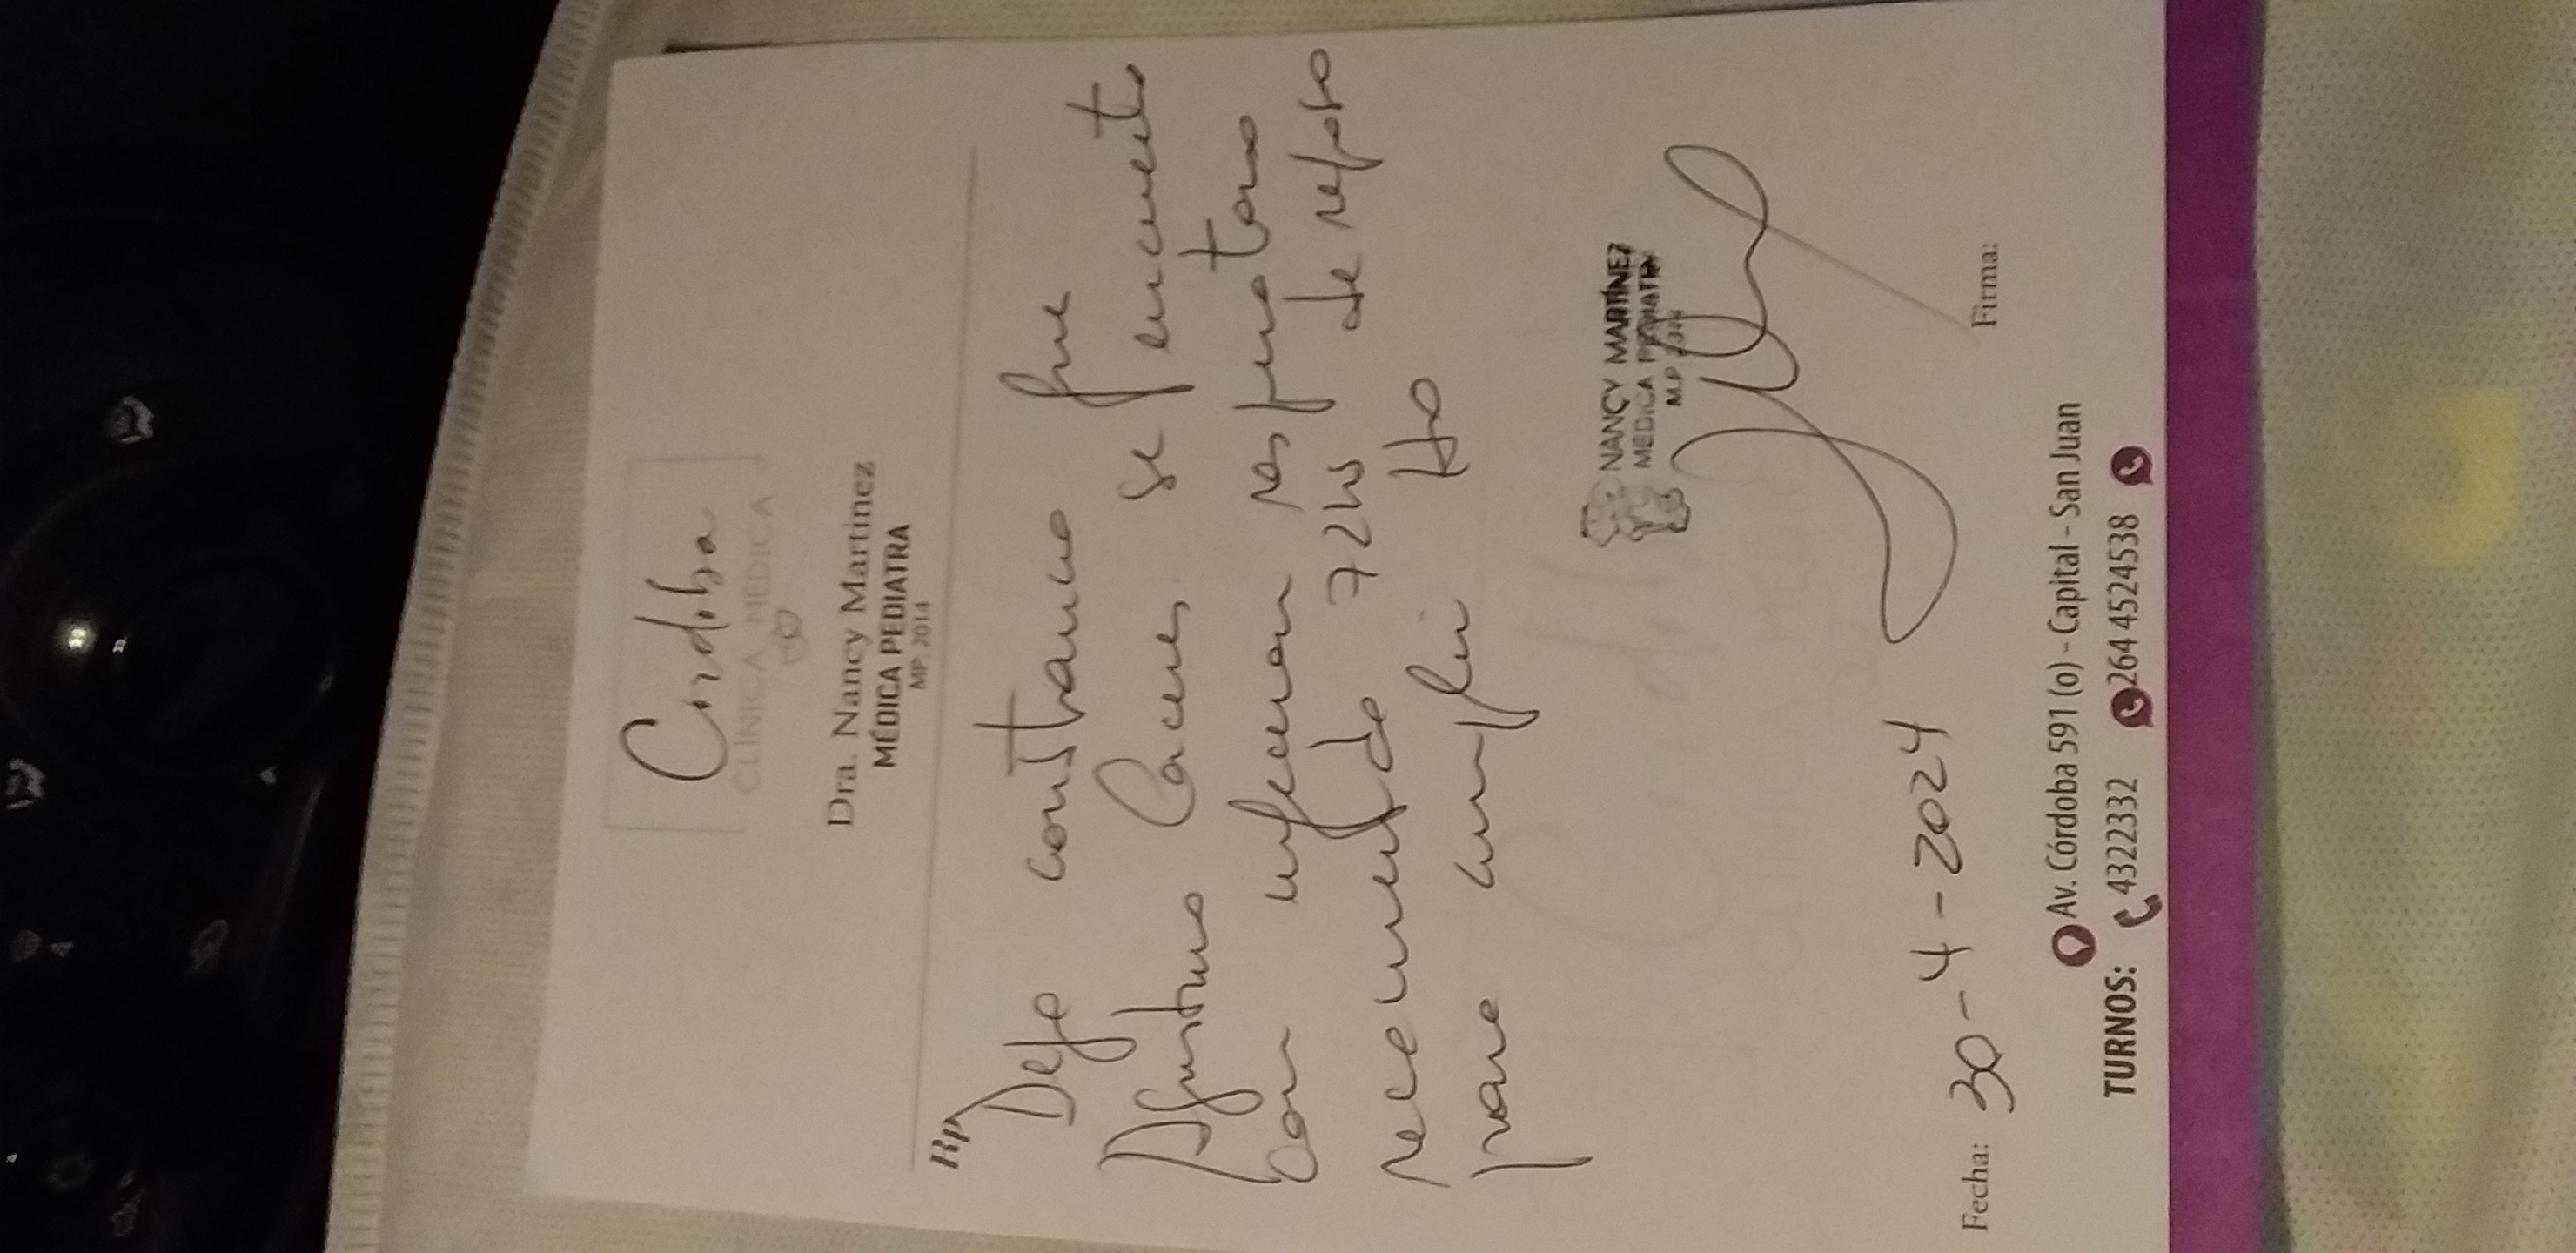 Córdoba
CLÍNICA MEDICA
Dra. Nancy Martinez
MÉDICA PEDIATRA
MP. 2014
Rp/
Dejo constancia que
Agustina Caceres se encuentra
con infeccion respiratoria
recomendando 72hs de reposo
para cumplir tto
NANCY MARTÍNEZ
MÉDICA PEDIATRA
M.P. 2014
Fecha: 30-4-2024
Firma:
Av. Córdoba 591 (o) - Capital - San Juan
TURNOS: 4322332 264 4524538